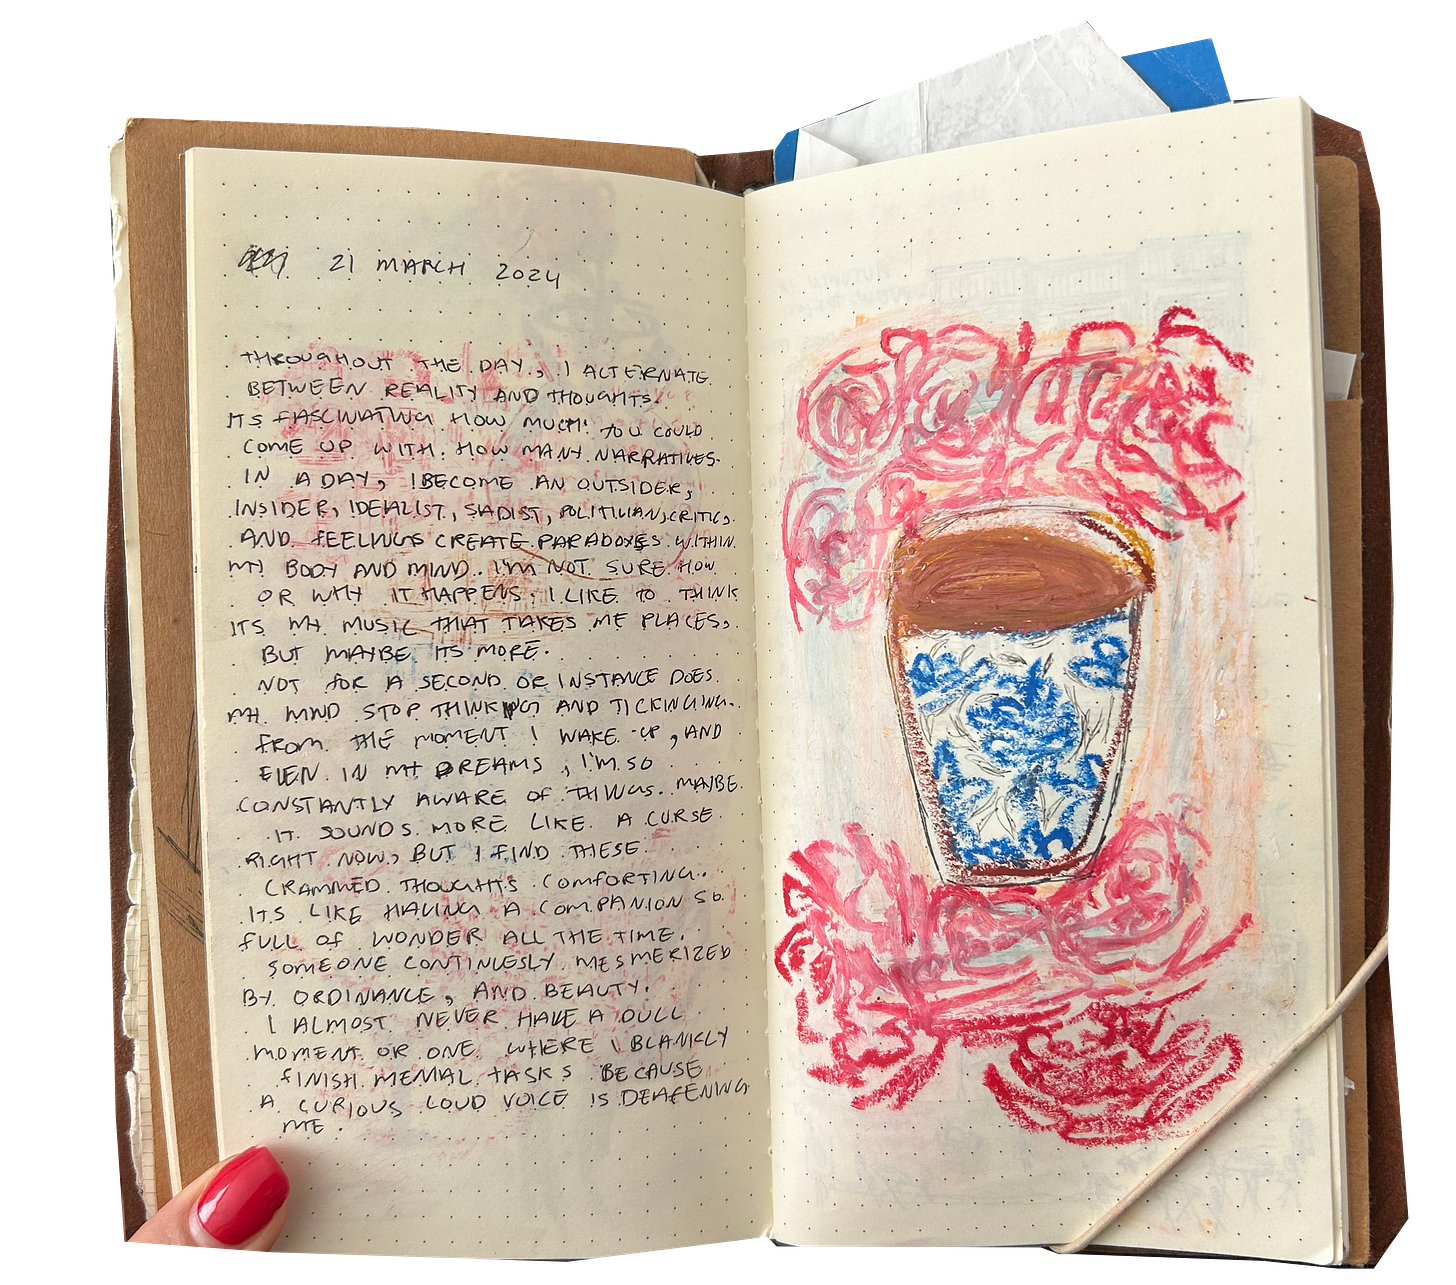 21 MARCH 2024
THROUGHOUT THE DAY, I ALTERNATE
BETWEEN REALITY AND THOUGHTS.
ITS FASCINATING HOW MUCH YOU COULD
COME UP WITH. HOW MANY NARRATIVES.
IN A DAY, I BECOME AN OUTSIDER,
INSIDER, IDEALIST, SADIST, POLITICIAN, CRITIC,
AND FEELINGS CREATE PARADOXES WITHIN
MY BODY AND MIND. I'M NOT SURE HOW
OR WHY IT HAPPENS. I LIKE TO THINK
ITS MY MUSIC THAT TAKES ME PLACES,
BUT MAYBE ITS MORE.
NOT FOR A SECOND OR INSTANCE DOES
MY MIND STOP THINKING AND TICKINGING.
FROM THE MOMENT I WAKE UP, AND
EVEN IN MY DREAMS, I'M SO
CONSTANTLY AWARE OF THINGS. MAYBE
IT SOUNDS MORE LIKE A CURSE
RIGHT NOW, BUT I FIND THESE
CRAMMED THOUGHTS COMFORTING.
ITS LIKE HAVING A COMPANION SO
FULL OF WONDER ALL THE TIME.
SOMEONE CONTINLESLY MESMERIZED
BY ORDINANCE, AND BEAUTY.
I ALMOST NEVER HAVE A DULL
MOMENT OR ONE WHERE I BLANKLY
FINISH MENIAL TASKS BECAUSE
A CURIOUS LOUD VOICE IS DEAFENING
ME.